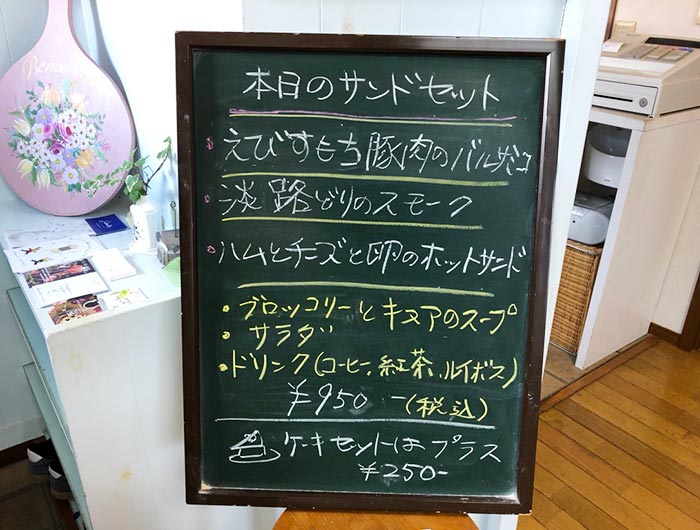 Benvenuti
本日のサンドセット
えびすもち豚肉のバルサミコ
淡路どりのスモーク
ハムとチーズと卵のホットサンド
・ブロッコリーとキヌアのスープ
・サラダ
・ドリンク(コーヒー、紅茶、ルイボス)
¥950-(税込)
ケーキセットはプラス
¥250-